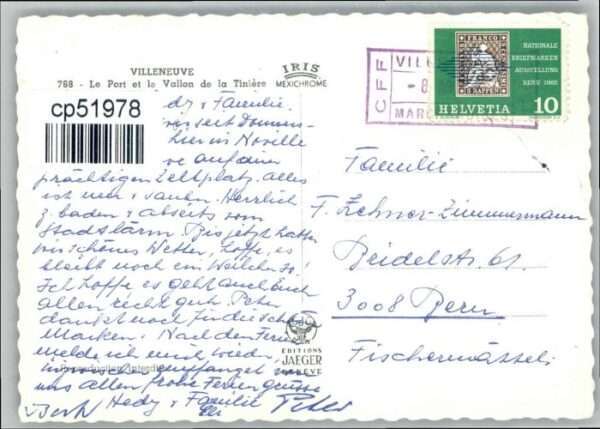 VILLENEUVE
768 - Le Port et le Vallon de la Tinière
IRIS
MEXICHROME
cp51978
CFF
VILL
- 8.
MARC
FRANCO
5 RAPPEN
NATIONALE
BRIEFMARKEN
AUSSTELLUNG
BERN 1965
HELVETIA 10
dy & Familie.
wir seit Donners-
hier in Noville
ve auf einer
prächtigen Zeltplatz. Alles
ist neu & sauber. Herrlich
z. baden & abseits vom
Stadtlärm. Bis jetzt hatten
wir schönes Wetter, hoffe, es
bleibt noch ein Weilchen so!
Ich hoffe es geht auch Euch
allen recht gut. Peter
dankt noch für die schönen
Marken. Nach den Ferien
melde ich mich wieder,
empfanget von
uns allen frohe Feriengrüsse
Hedy & Familie
Peter
Familie
F. Zehner-Zimmermann
Beidelstr. 61
3008 Bern
Fischermätteli
EDITIONS
JAEGER
GENEVE